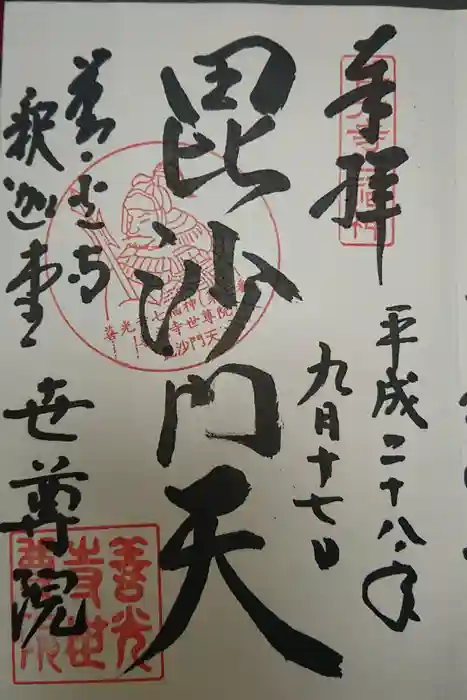 奉拝
平成二十八年
九月十七日
毘沙門天
善光寺
釈迦堂
世尊院
善光寺世尊院
毘沙門天
善光寺世
尊院